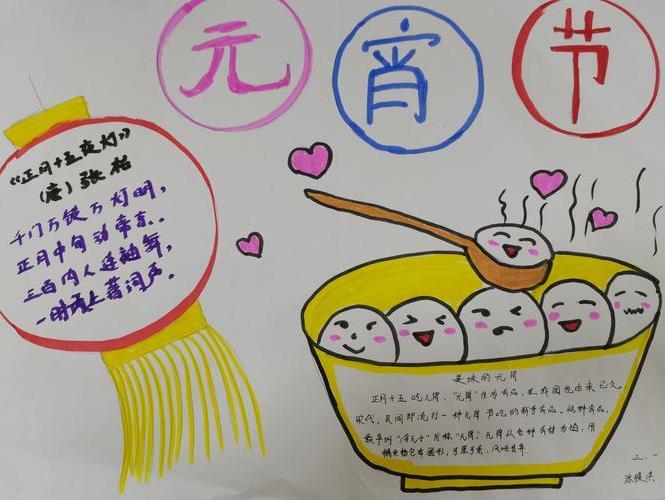 元宵节
《正月十五夜灯》
(唐)张祜
千门万锁万灯明,
正月中旬动帝京.
三百内人连袖舞,
一时天上著词声.
美味的元宵
正月十五吃元宵,“元宵”作为食品,在我国也由来已久。
宋代,民间即流行一种元宵节吃的新奇食品。这种食品,
最早叫“浮元子”后称“元宵”,元宵以各种食材为馅,用
糯米粉包成圆形,可荤可素,风味各异.
三.一